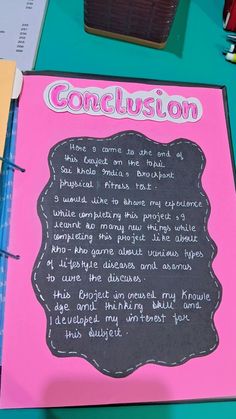 Conclusion
Here I came to the end of
this Project on the topic
Sai khelo India, Brockport
physical fitness test.
I would like to share my experience
while completing this project, I
learnt so many new things while
completing this project like about
kho-kho game about various types
of lifestyle diseases and asanas
to cure the diseases.
this Project increased my Knowle
dge and thinking skill and
developed my interest for
this subject.